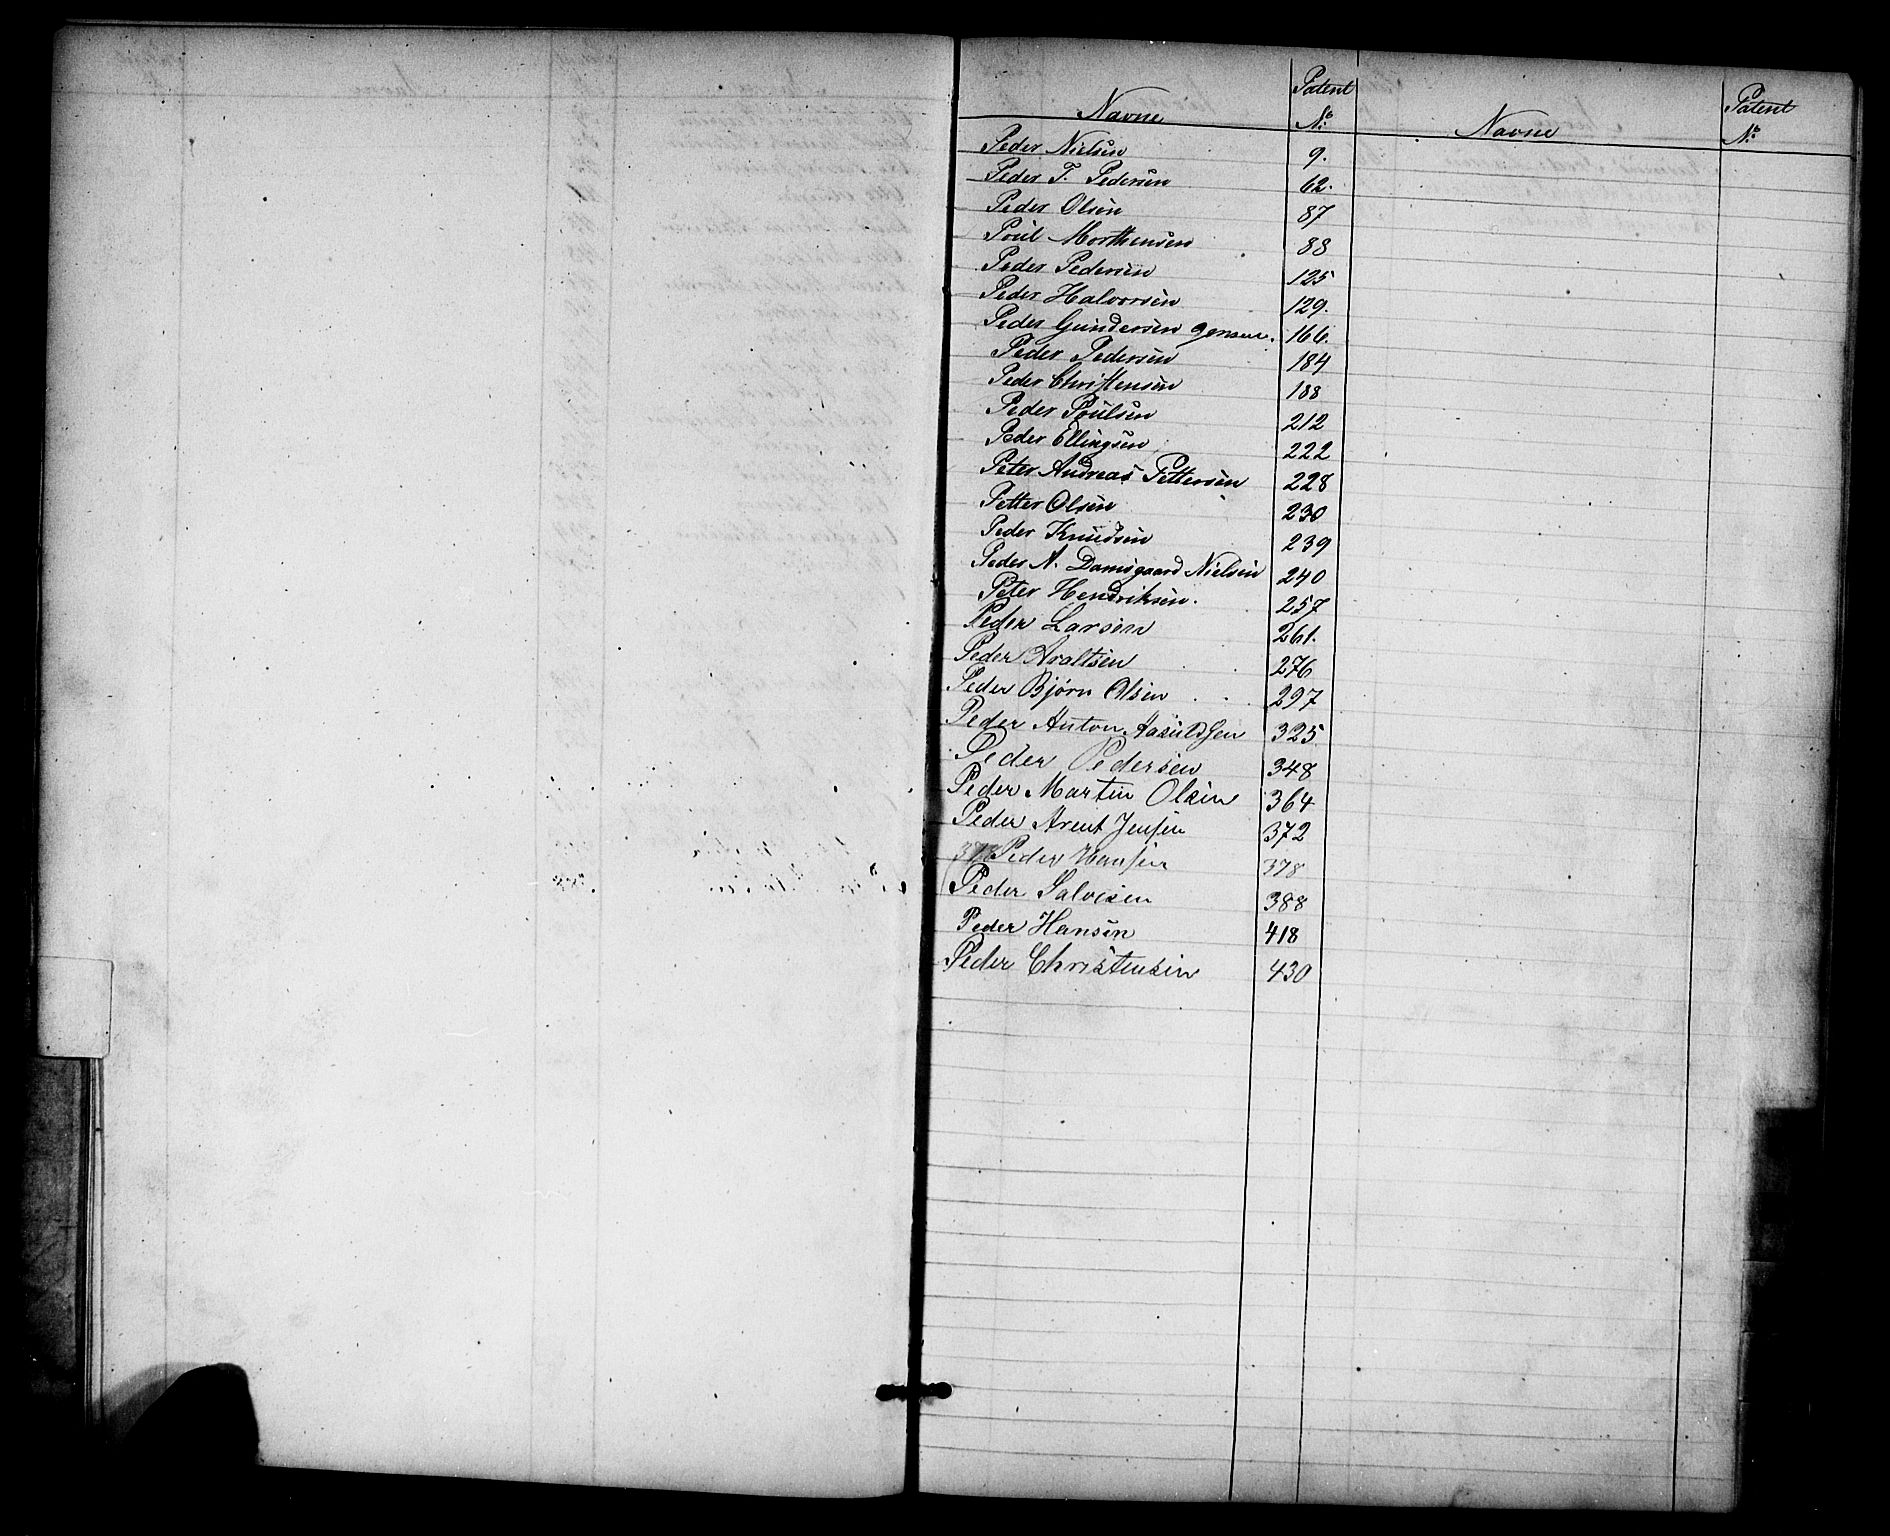 Navne Patent No. Navne Patent No.
Peder Nielsen 9.
Peder T. Pedersen 62.
Peder Olsen 87
Poul Morthensen 88
Peder Pedersen 125
Peder Halvorsen 129.
Peder Gundersen Jensen. 166.
Peder Pedersen 184
Peder Christensen 188
Peder Poulsen 212
Peder Ellingsen 222
Peter Andreas Pettersen 228
Petter Olsen 230
Peder Knudsen 239
Peder A. Damsgaard Nielsen 240
Peter Hendriksen. 257
Peder Larsen 261.
Peder Araltsen 276
Peder Bjørn Olsen 297
Peder Anton Aasuldsen 325
Peder Pedersen 348
Peder Martin Olsen 364
Peder Arent Jensen 372
Peder Hansen 378
Peder Salvesen 388
Peder Hansen 418
Peder Christensen 430